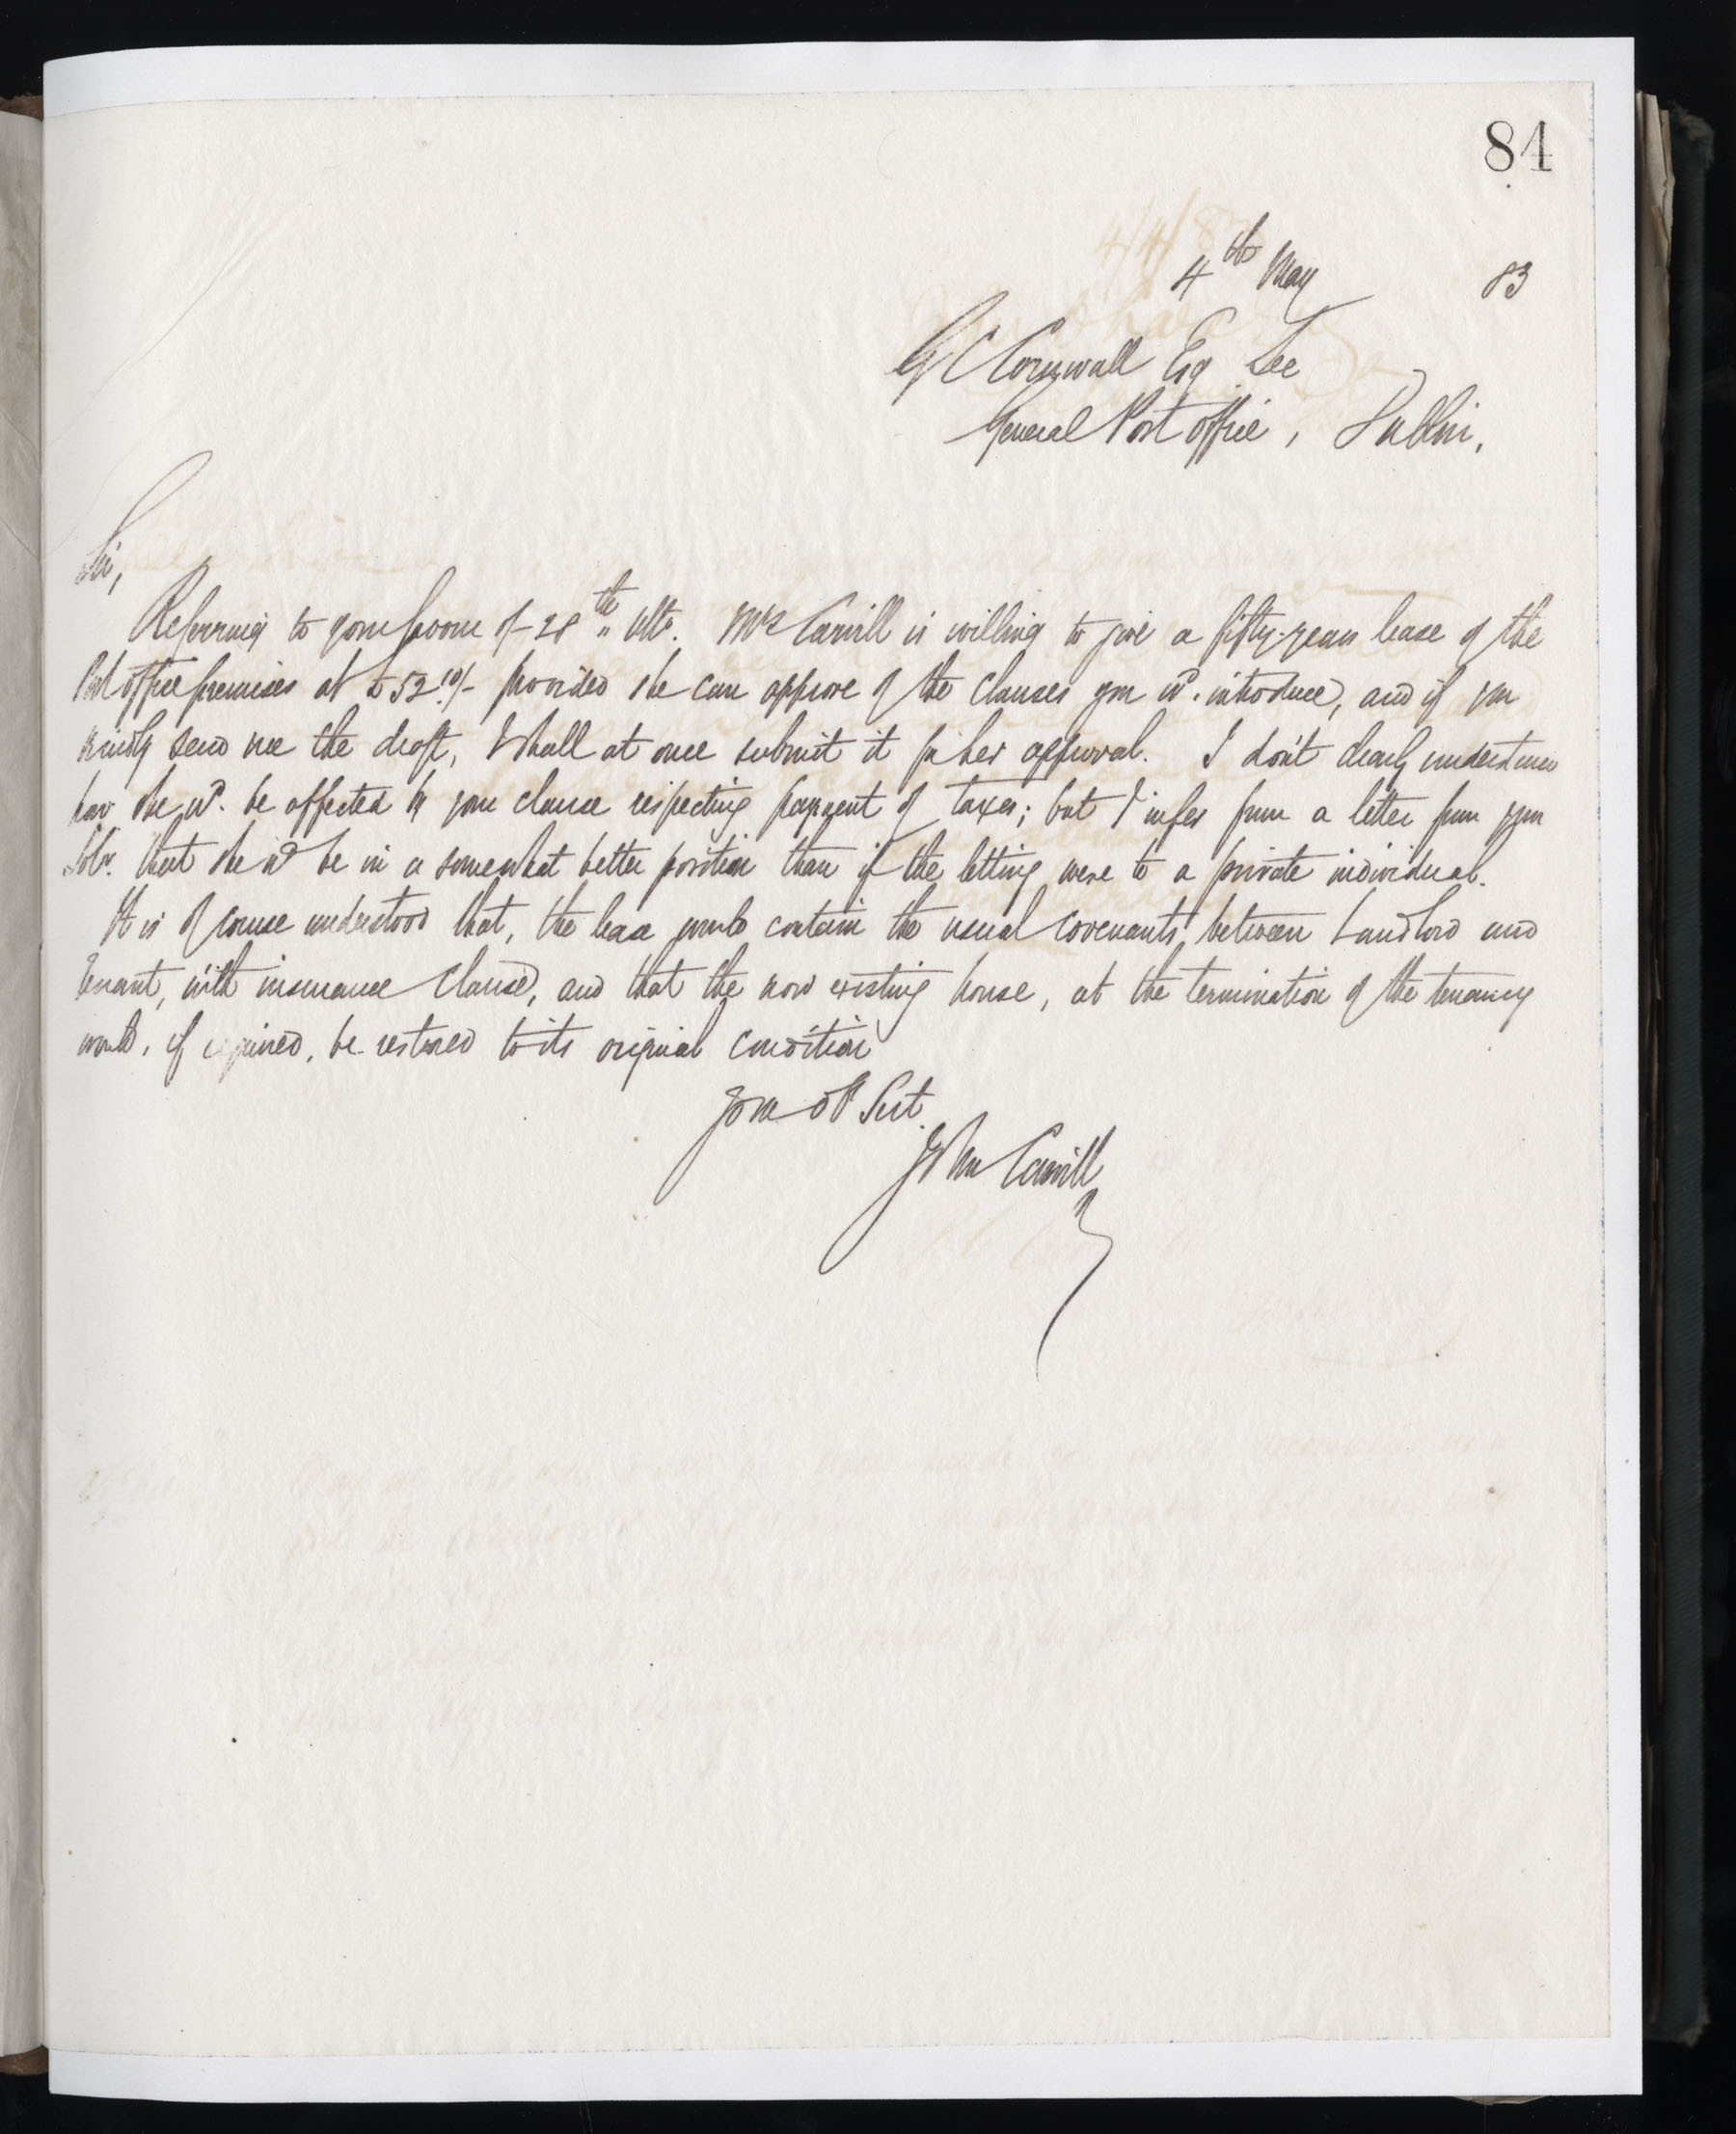 84
4th May 83
G C Cornwall Esq Sec
General Post office, Dublin.
Sir,
Referring to your favour of 28th ulto. Mrs Carvill is willing to give a fifty-years lease of the
Post office premises at £52.10/- provided she can approve of the clauses you wd. introduce, and if you
kindly send me the draft, I shall at once submit it for her approval. I don't clearly understand
how she wd. be affected by your clause respecting payment of taxes; but I infer from a letter from your
Solr. that she wd be in a somewhat better position than if the letting were to a private individual.
It is of course understood that, the lease would contain the usual covenants between Landlord and
Tenant, with insurance Clause, and that the now existing house, at the termination of the tenancy
would, if required, be restored to its original condition
Your ob Sert.
John Carvill